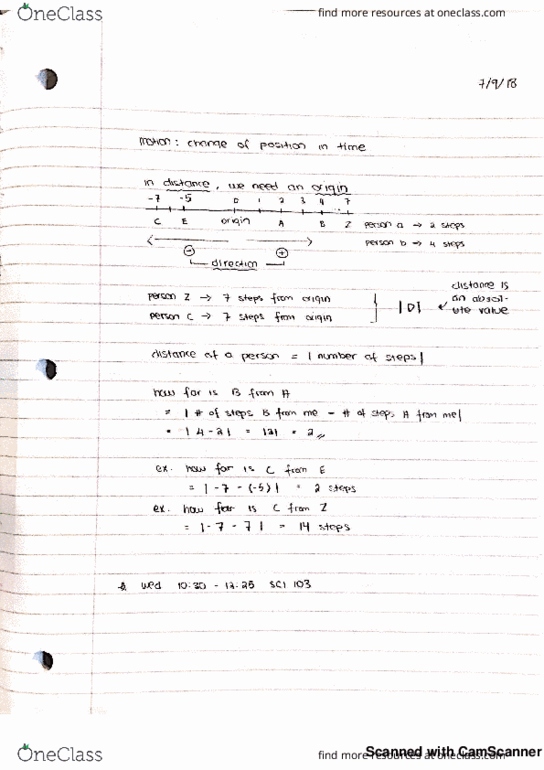 OneClass
find more resources at oneclass.com
7/9/18
motion: change of position in time
in distance, we need an origin
-7 -5 0 1 2 3 4 7
C E origin A B Z
person a → 2 steps
person b → 4 steps
⊖ ⊕
direction
person Z → 7 steps from origin
person C → 7 steps from origin
|D|
distance is
an absol-
ute value
distance of a person = | number of steps |
how far is B from A
= | # of steps B from me - # of steps A from me |
= | 4 - 2 | = |2| = 2
ex. how far is C from E
= | -7 - (-5) | = 2 steps
ex. how far is C from Z
= | -7 - 7 | = 14 steps
wed 10:20 - 12:25 SCI 103
OneClass
find more resources at oneclass.com
Scanned with CamScanner